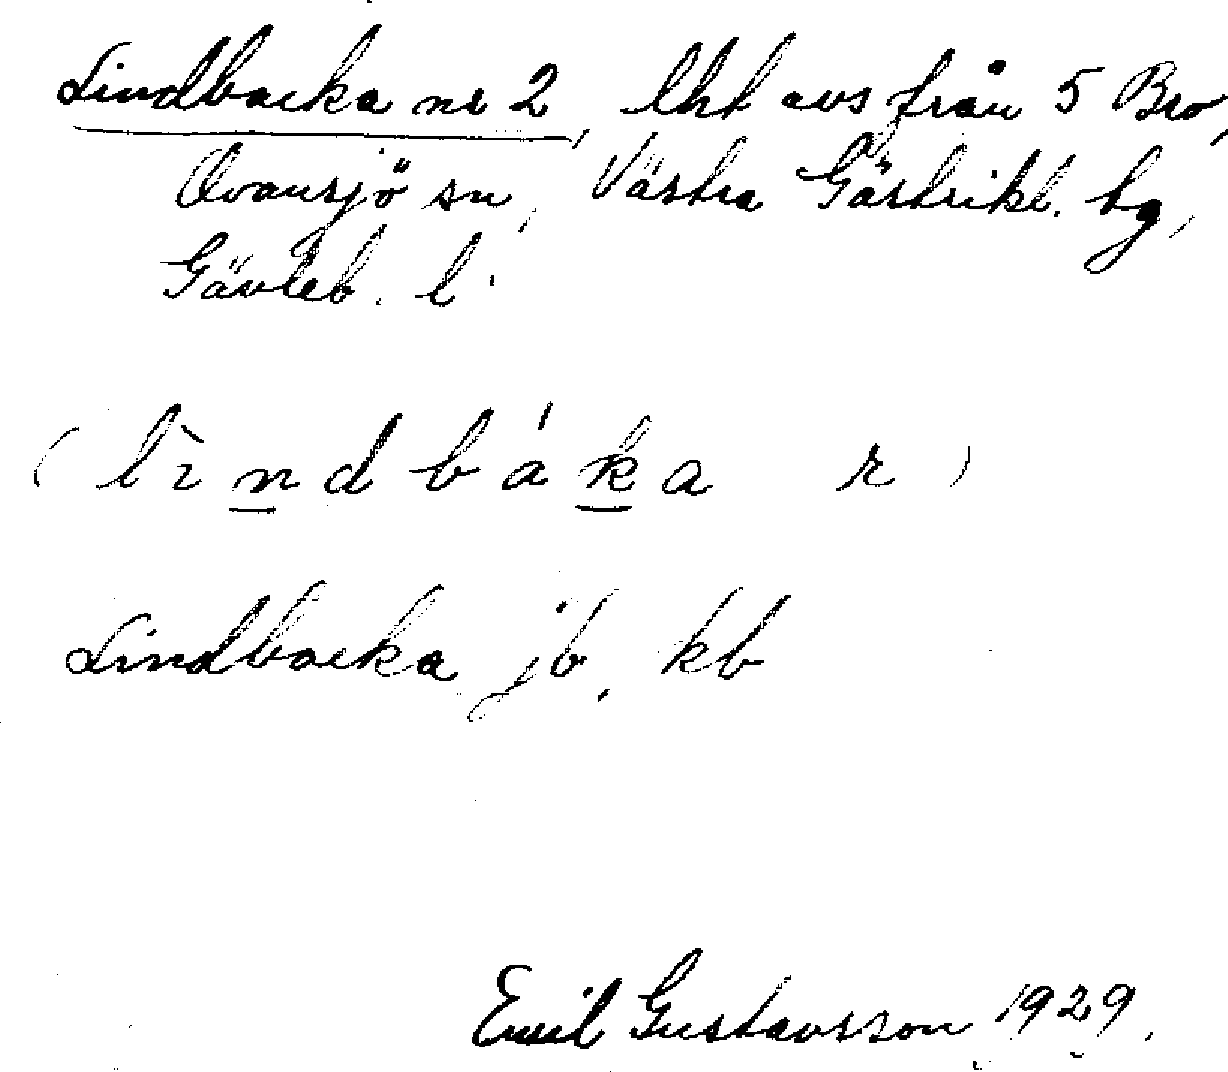 Lindbacka nr 2, lht avs från 5 Bro,
Ovansjö sn, Västra Gästrikl. tg,
Gävleb. l.
( lìndbáka r )
Lindbacka jb, kb
Emil Gustavsson 1929.